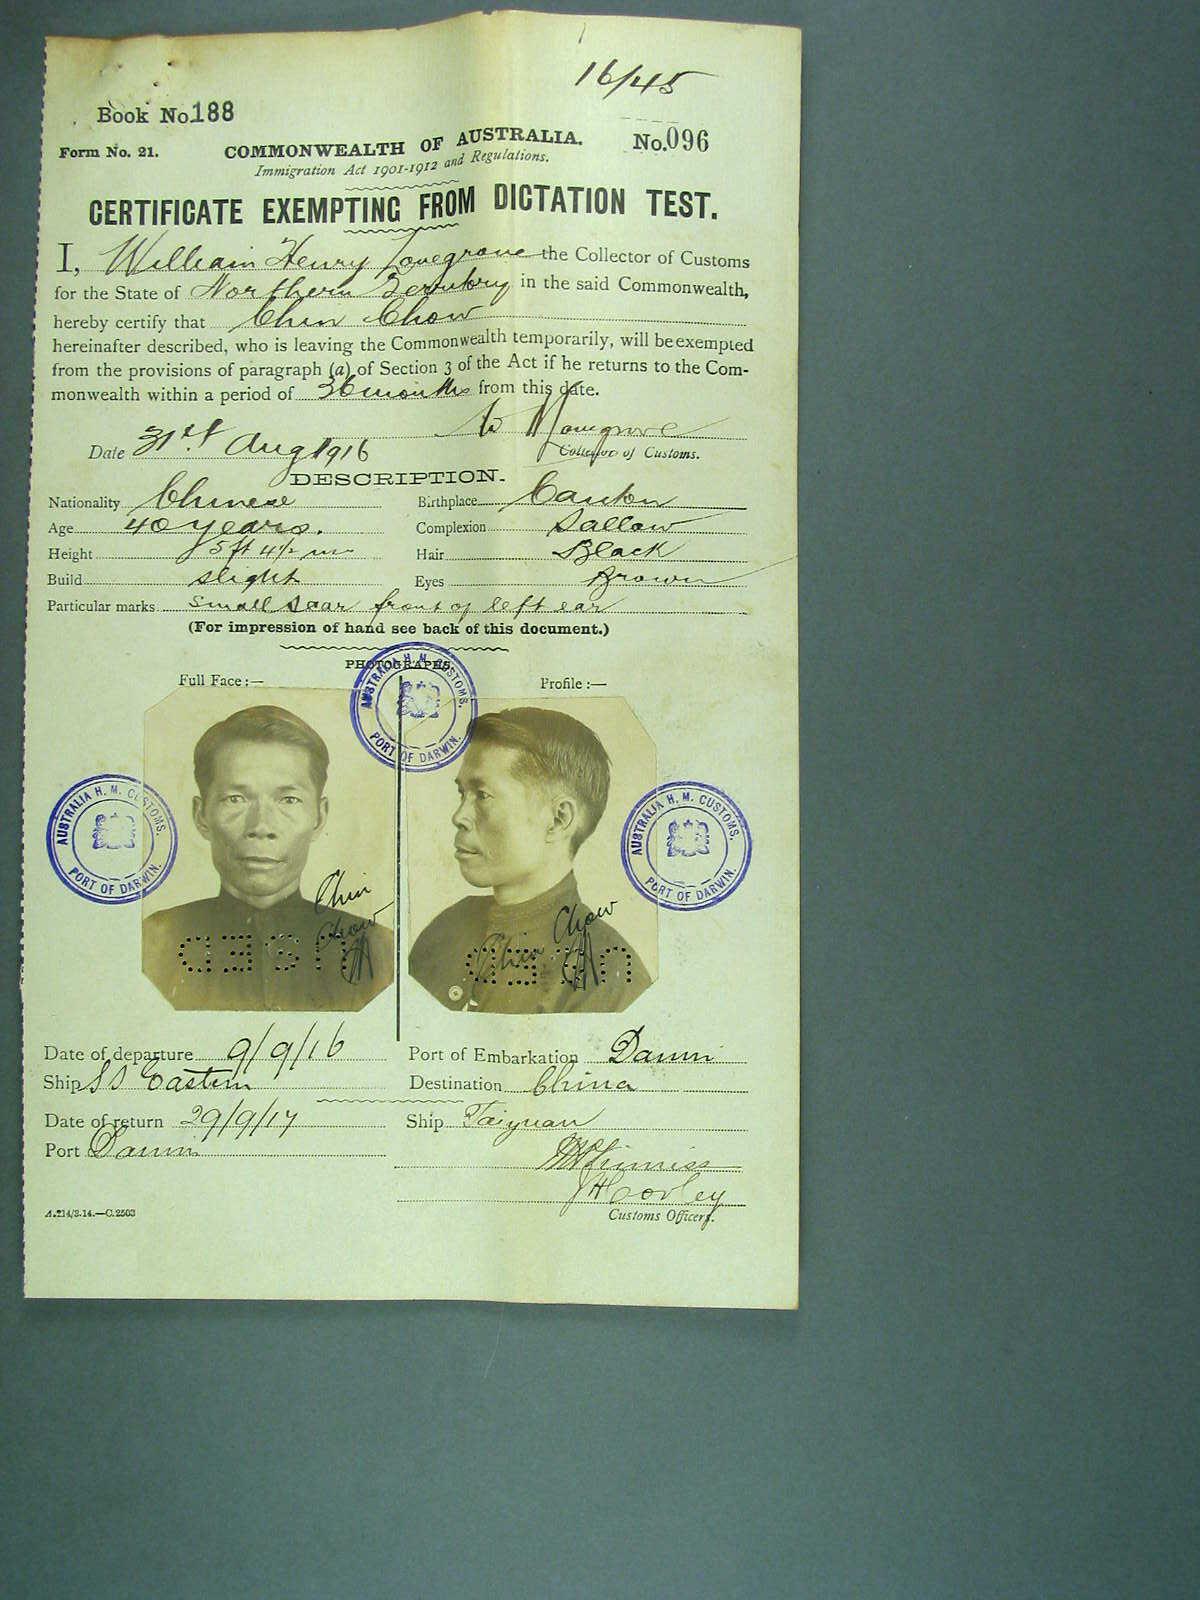 16/45
Book No. 188
Form No. 21.
COMMONWEALTH OF AUSTRALIA.
No. 096
Immigration Act 1901-1912 and Regulations.
CERTIFICATE EXEMPTING FROM DICTATION TEST.
I, William Henry Lovegrove the Collector of Customs
for the State of Northern Territory in the said Commonwealth,
hereby certify that Chin Chow
hereinafter described, who is leaving the Commonwealth temporarily, will be exempted
from the provisions of paragraph (a) of Section 3 of the Act if he returns to the Com-
monwealth within a period of 36 months from this date.
W H Lovegrove
Date 31st Aug 1916
Collector of Customs.
DESCRIPTION.
Nationality Chinese Birthplace Canton
Age 40 years. Complexion Sallow
Height 5 ft 4½ ins Hair Black
Build slight Eyes Brown
Particular marks small scar front of left ear
(For impression of hand see back of this document.)
PHOTOGRAPHS.
Full Face:— Profile:—
AUSTRALIA H. M. CUSTOMS.
PORT OF DARWIN.
AUSTRALIA H. M. CUSTOMS.
PORT OF DARWIN.
AUSTRALIA H. M. CUSTOMS.
PORT OF DARWIN.
Chin Chow
Chin Chow
USED
USED
Date of departure 9/9/16 Port of Embarkation Darwin
Ship SS Eastern Destination China
Date of return 29/9/17 Ship Taiyuan
Port Darwin
Customs Officers.
A.214/3.14.—C.2503